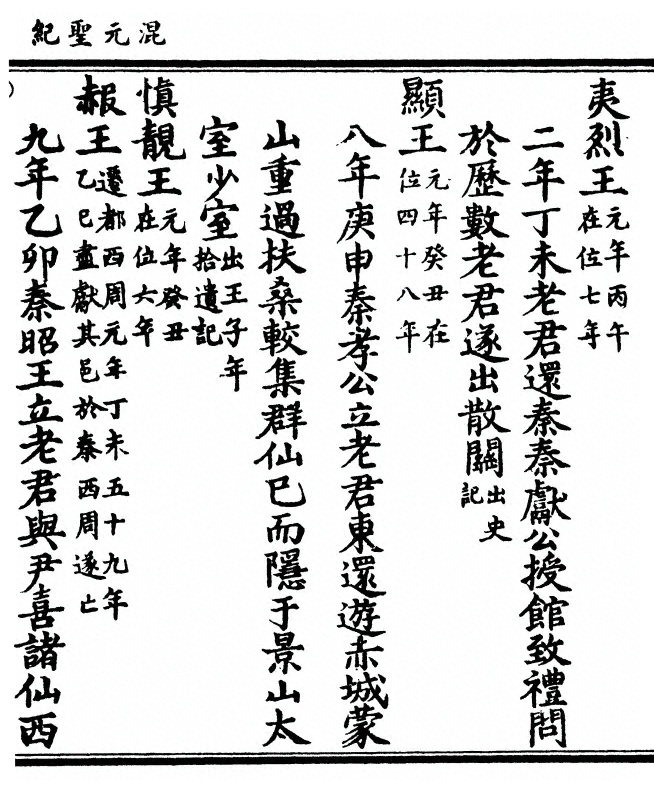 混元聖紀
夷烈王元年丙午在位七年
二年丁未老君還秦秦獻公授館致禮問
於歷數老君遂出散關出史記
顯王元年癸丑在位四十八年
八年庚申秦孝公立老君東還遊赤城蒙
山重過扶桑較集群仙已而隱于景山太
室少室出王子年拾遺記
慎靚王元年癸丑在位六年
赧王遷都西周元年丁未五十九年乙巳盡獻其邑於秦西周遂亡
九年乙卯秦昭王立老君與尹喜諸仙西